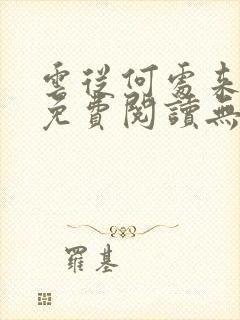 雲從何處來
免費閱讀無
羅基